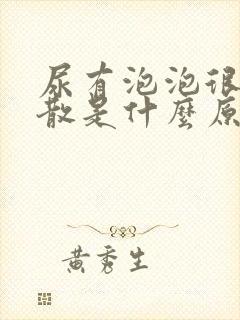 尿有泡泡很
散是什麼原
黃秀生